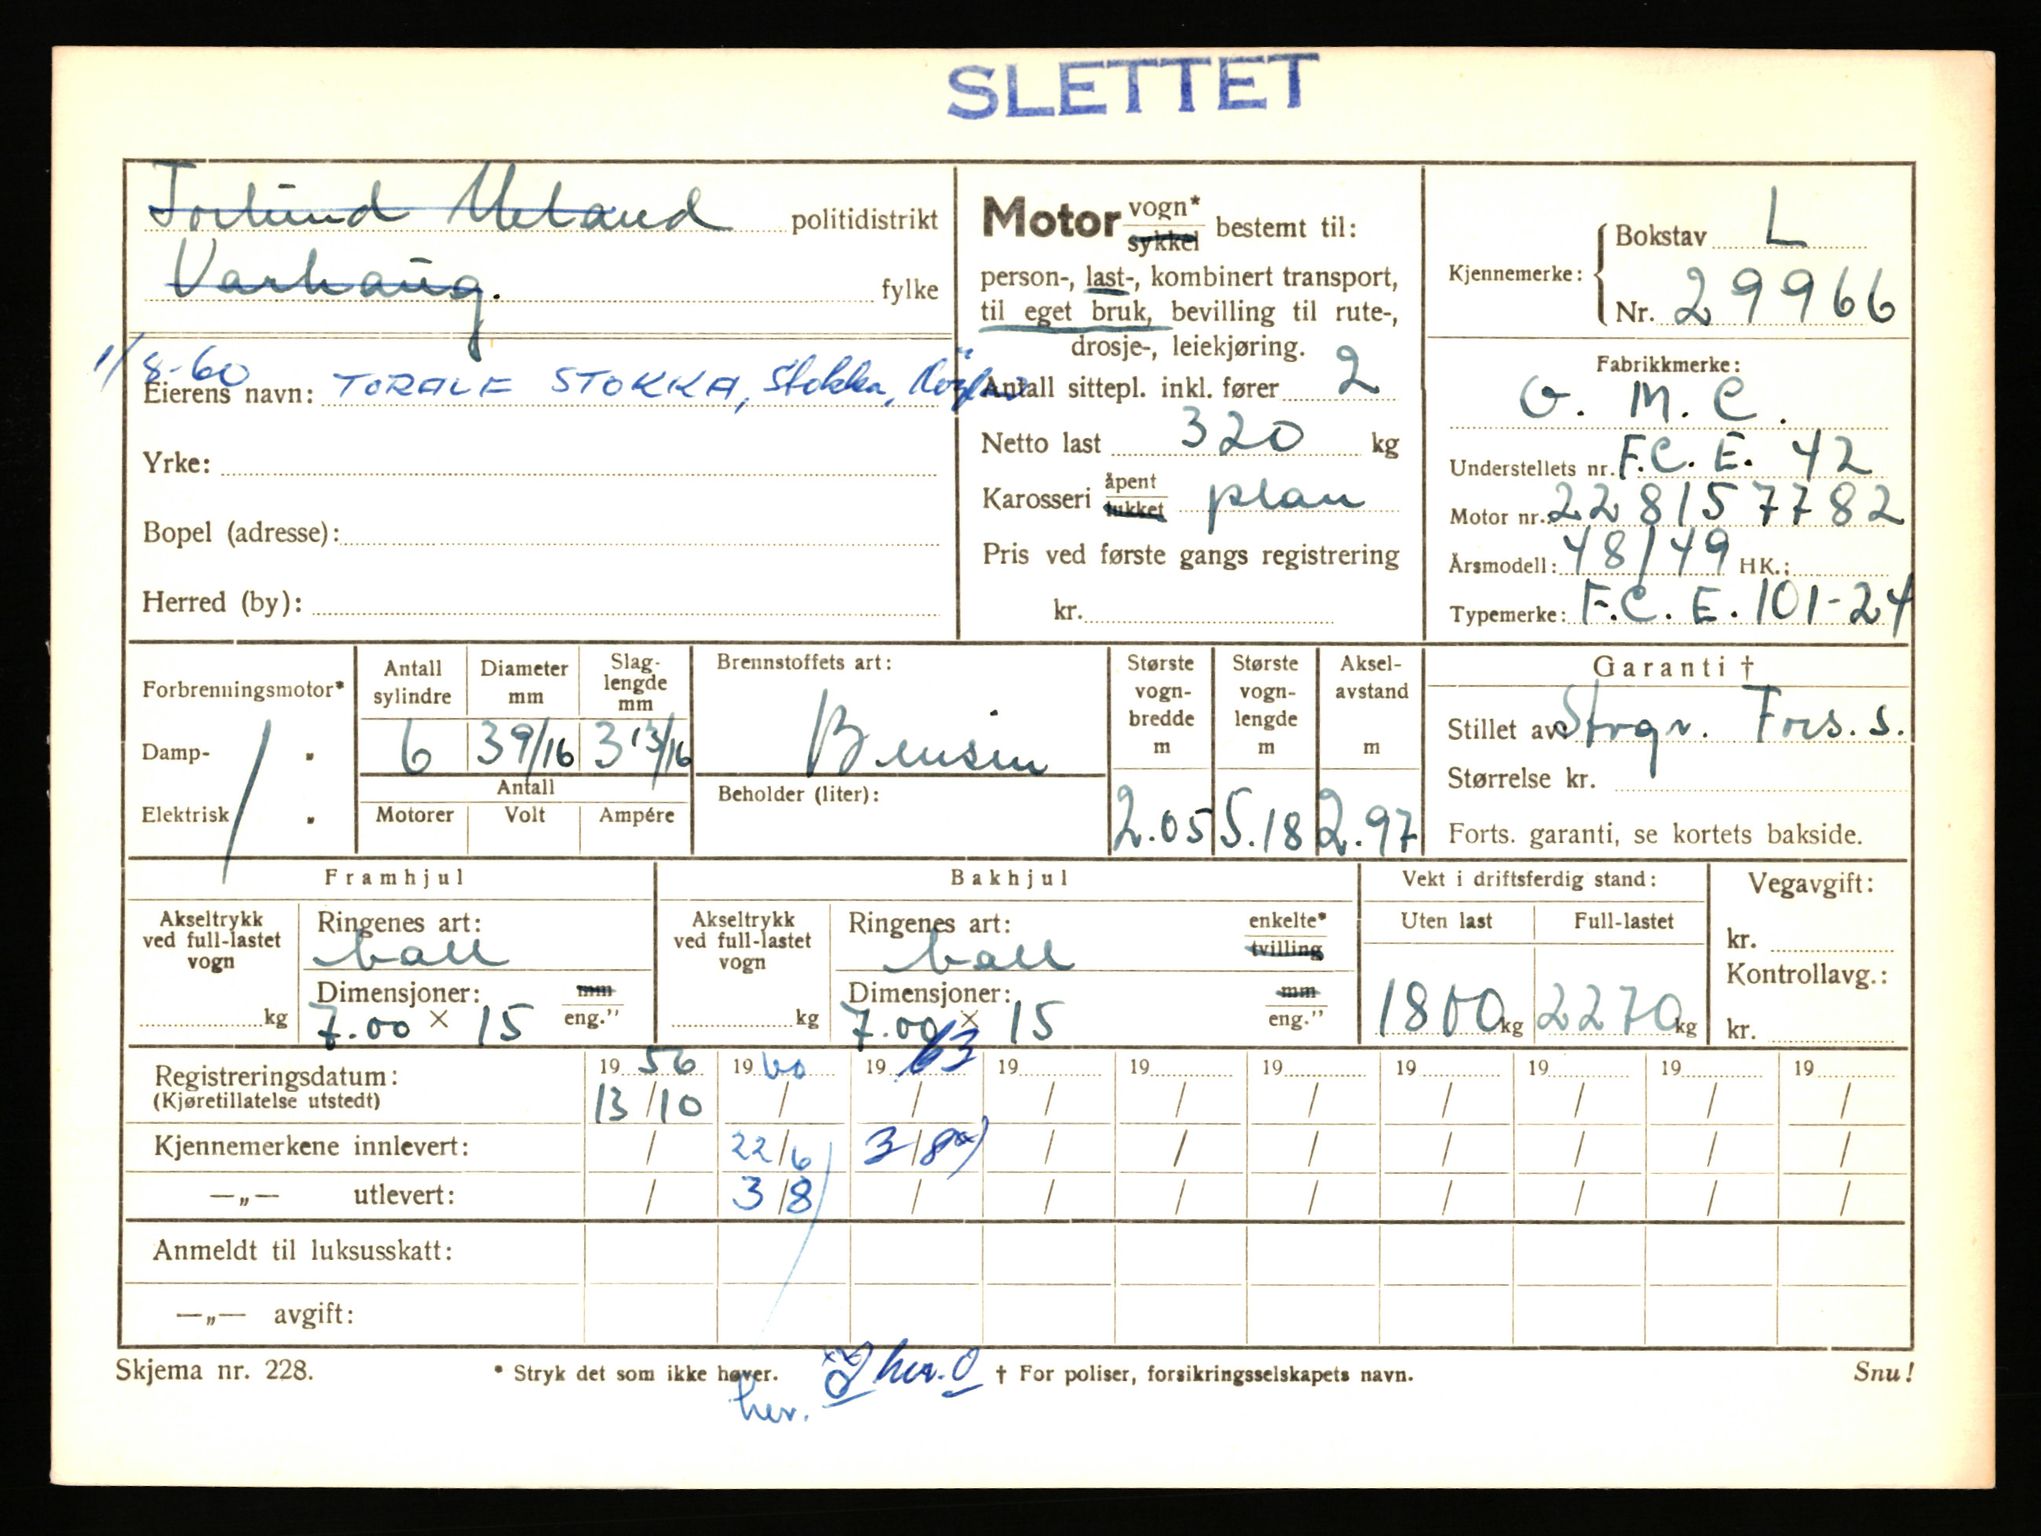 SLETTET
Torlund Meland politidistrikt
Varhaug. fylke
1/8-60
Eierens navn: TORALF STOKKA, Stokka,
Yrke:
Bopel (adresse):
Herred (by):
Motor vogn* sykkel bestemt til:
person-, last-, kombinert transport,
til eget bruk, bevilling til rute-,
drosje-, leiekjøring.
Antall sittepl. inkl. fører 2
Netto last 320 kg
Karosseri åpent lukket plan
Pris ved første gangs registrering
kr.
Kjennemerke: Bokstav L
Nr. 29966
Fabrikkmerke:
G. M. C.
Understellets nr. F.C. E. 42
Motor nr.: 228157782
Årsmodell: 48/49 HK.:
Typemerke: F.C. E. 101-24
Forbrenningsmotor*
Damp- "
Elektrisk "
Antall sylindre 6
Diameter mm 3 9/16
Slag-lengde mm 3 13/16
Antall
Motorer Volt Ampére
Brennstoffets art:
Bensin
Beholder (liter):
Største vogn-bredde m 2.05
Største vogn-lengde m 5.18
Aksel-avstand m 2.97
Garanti †
Stillet av Strgr. Fors. s.
Størrelse kr.
Forts. garanti, se kortets bakside.
Framhjul
Akseltrykk ved full-lastet vogn
kg
Ringenes art:
ball
Dimensjoner: mm
7.00 × 15 eng."
Bakhjul
Akseltrykk ved full-lastet vogn
kg
Ringenes art: enkelte*
ball tvilling
Dimensjoner: mm
7.00 × 15 eng."
Vekt i driftsferdig stand:
Uten last Full-lastet
1800 kg 2270 kg
Vegavgift:
kr.
Kontrollavg.:
kr.
Registreringsdatum: 19 56 19 60 19 63 19 19 19 19 19 19 19
(Kjøretillatelse utstedt) 13/10 / / / / / / / / /
Kjennemerkene innlevert: / 22/6 3/8 xx) / / / / / / /
—„— utlevert: / 3/8 / / / / / / / /
Anmeldt til luksusskatt:
—„— avgift:
Skjema nr. 228. * Stryk det som ikke høver. xx) her. † For poliser, forsikringsselskapets navn. Snu!
her.